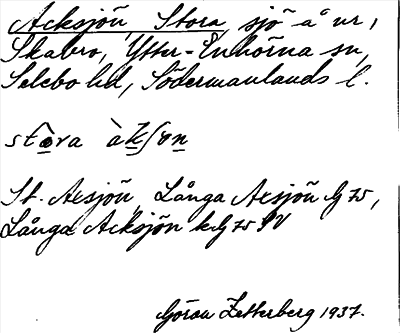 Acksjön, Stora, sjö å ur,
Skabro, Ytter-Enhörna sn,
Selebo hd, Södermanlands l.
stòra àkʃøn
St. Axsjön, Långa Axsjön Gj 75,
Långa Acksjön k Gj 75 SV
Göran Zetterberg 1937.